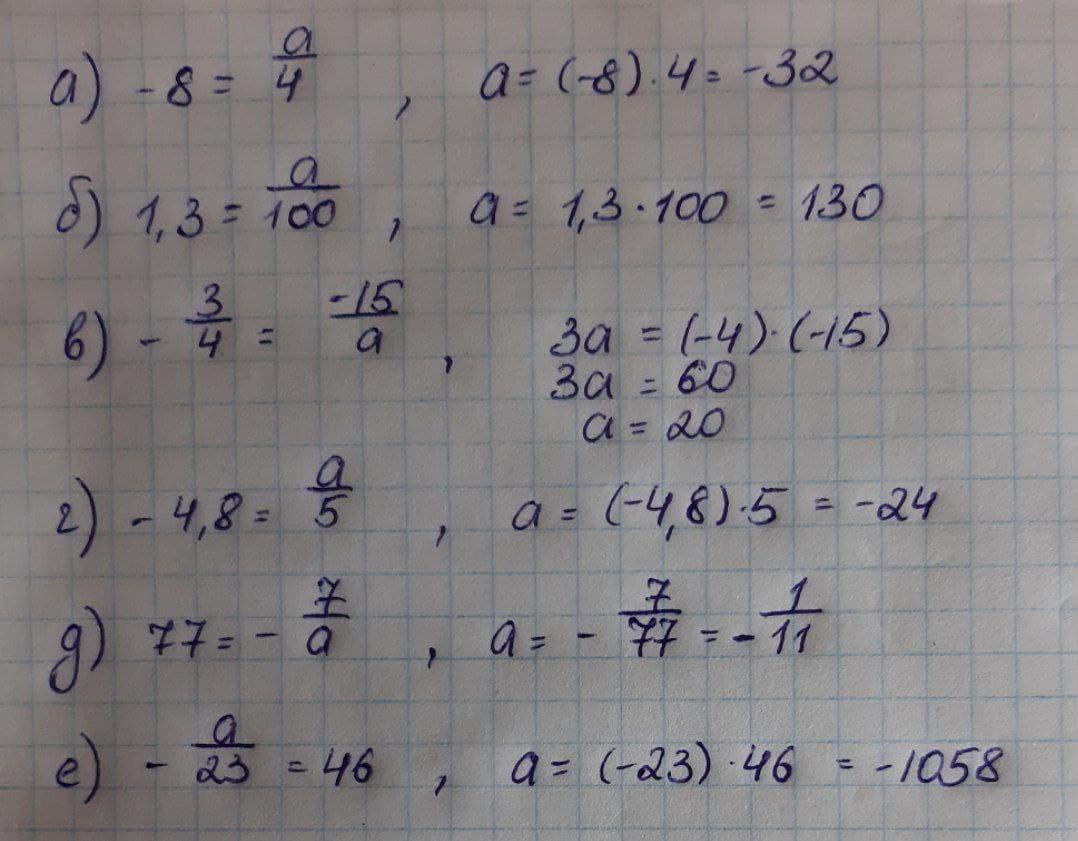 а) -8 = a/4 , a = (-8) · 4 = -32
б) 1,3 = a/100 , a = 1,3 · 100 = 130
в) - 3/4 = -15/a , 3a = (-4) · (-15)
3a = 60
a = 20
г) - 4,8 = a/5 , a = (-4,8) · 5 = -24
д) 77 = - 7/a , a = - 7/77 = - 1/11
е) - a/23 = 46 , a = (-23) · 46 = -1058